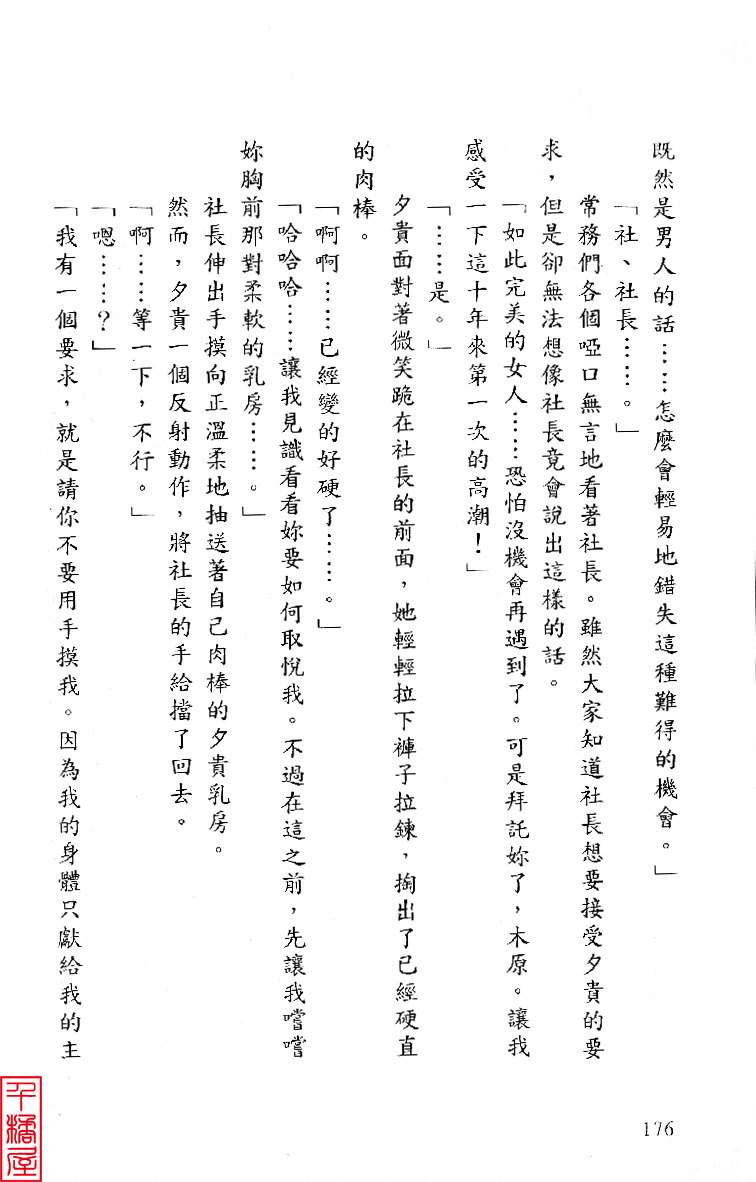 既然是男人的話……怎麼會輕易地錯失這種難得的機會。」
「社、社長……。」
常務們各個啞口無言地看著社長。雖然大家知道社長想要接受夕貴的要
求，但是卻無法想像社長竟會說出這樣的話。
「如此完美的女人……恐怕沒機會再遇到了。可是拜託妳了，木原。讓我
感受一下這十年來第一次的高潮！」
「……是。」
夕貴面對著微笑跪在社長的前面，她輕輕拉下褲子拉鍊，掏出了已經硬直
的肉棒。
「啊啊……已經變的好硬了……。」
「哈哈哈……讓我見識看看妳要如何取悅我。不過在這之前，先讓我嚐嚐
妳胸前那對柔軟的乳房……。」
社長伸出手摸向正溫柔地抽送著自己肉棒的夕貴乳房。
然而，夕貴一個反射動作，將社長的手給擋了回去。
「啊……等一下，不行。」
「嗯……？」
「我有一個要求，就是請你不要用手摸我。因為我的身體只獻給我的主
176
橘屋